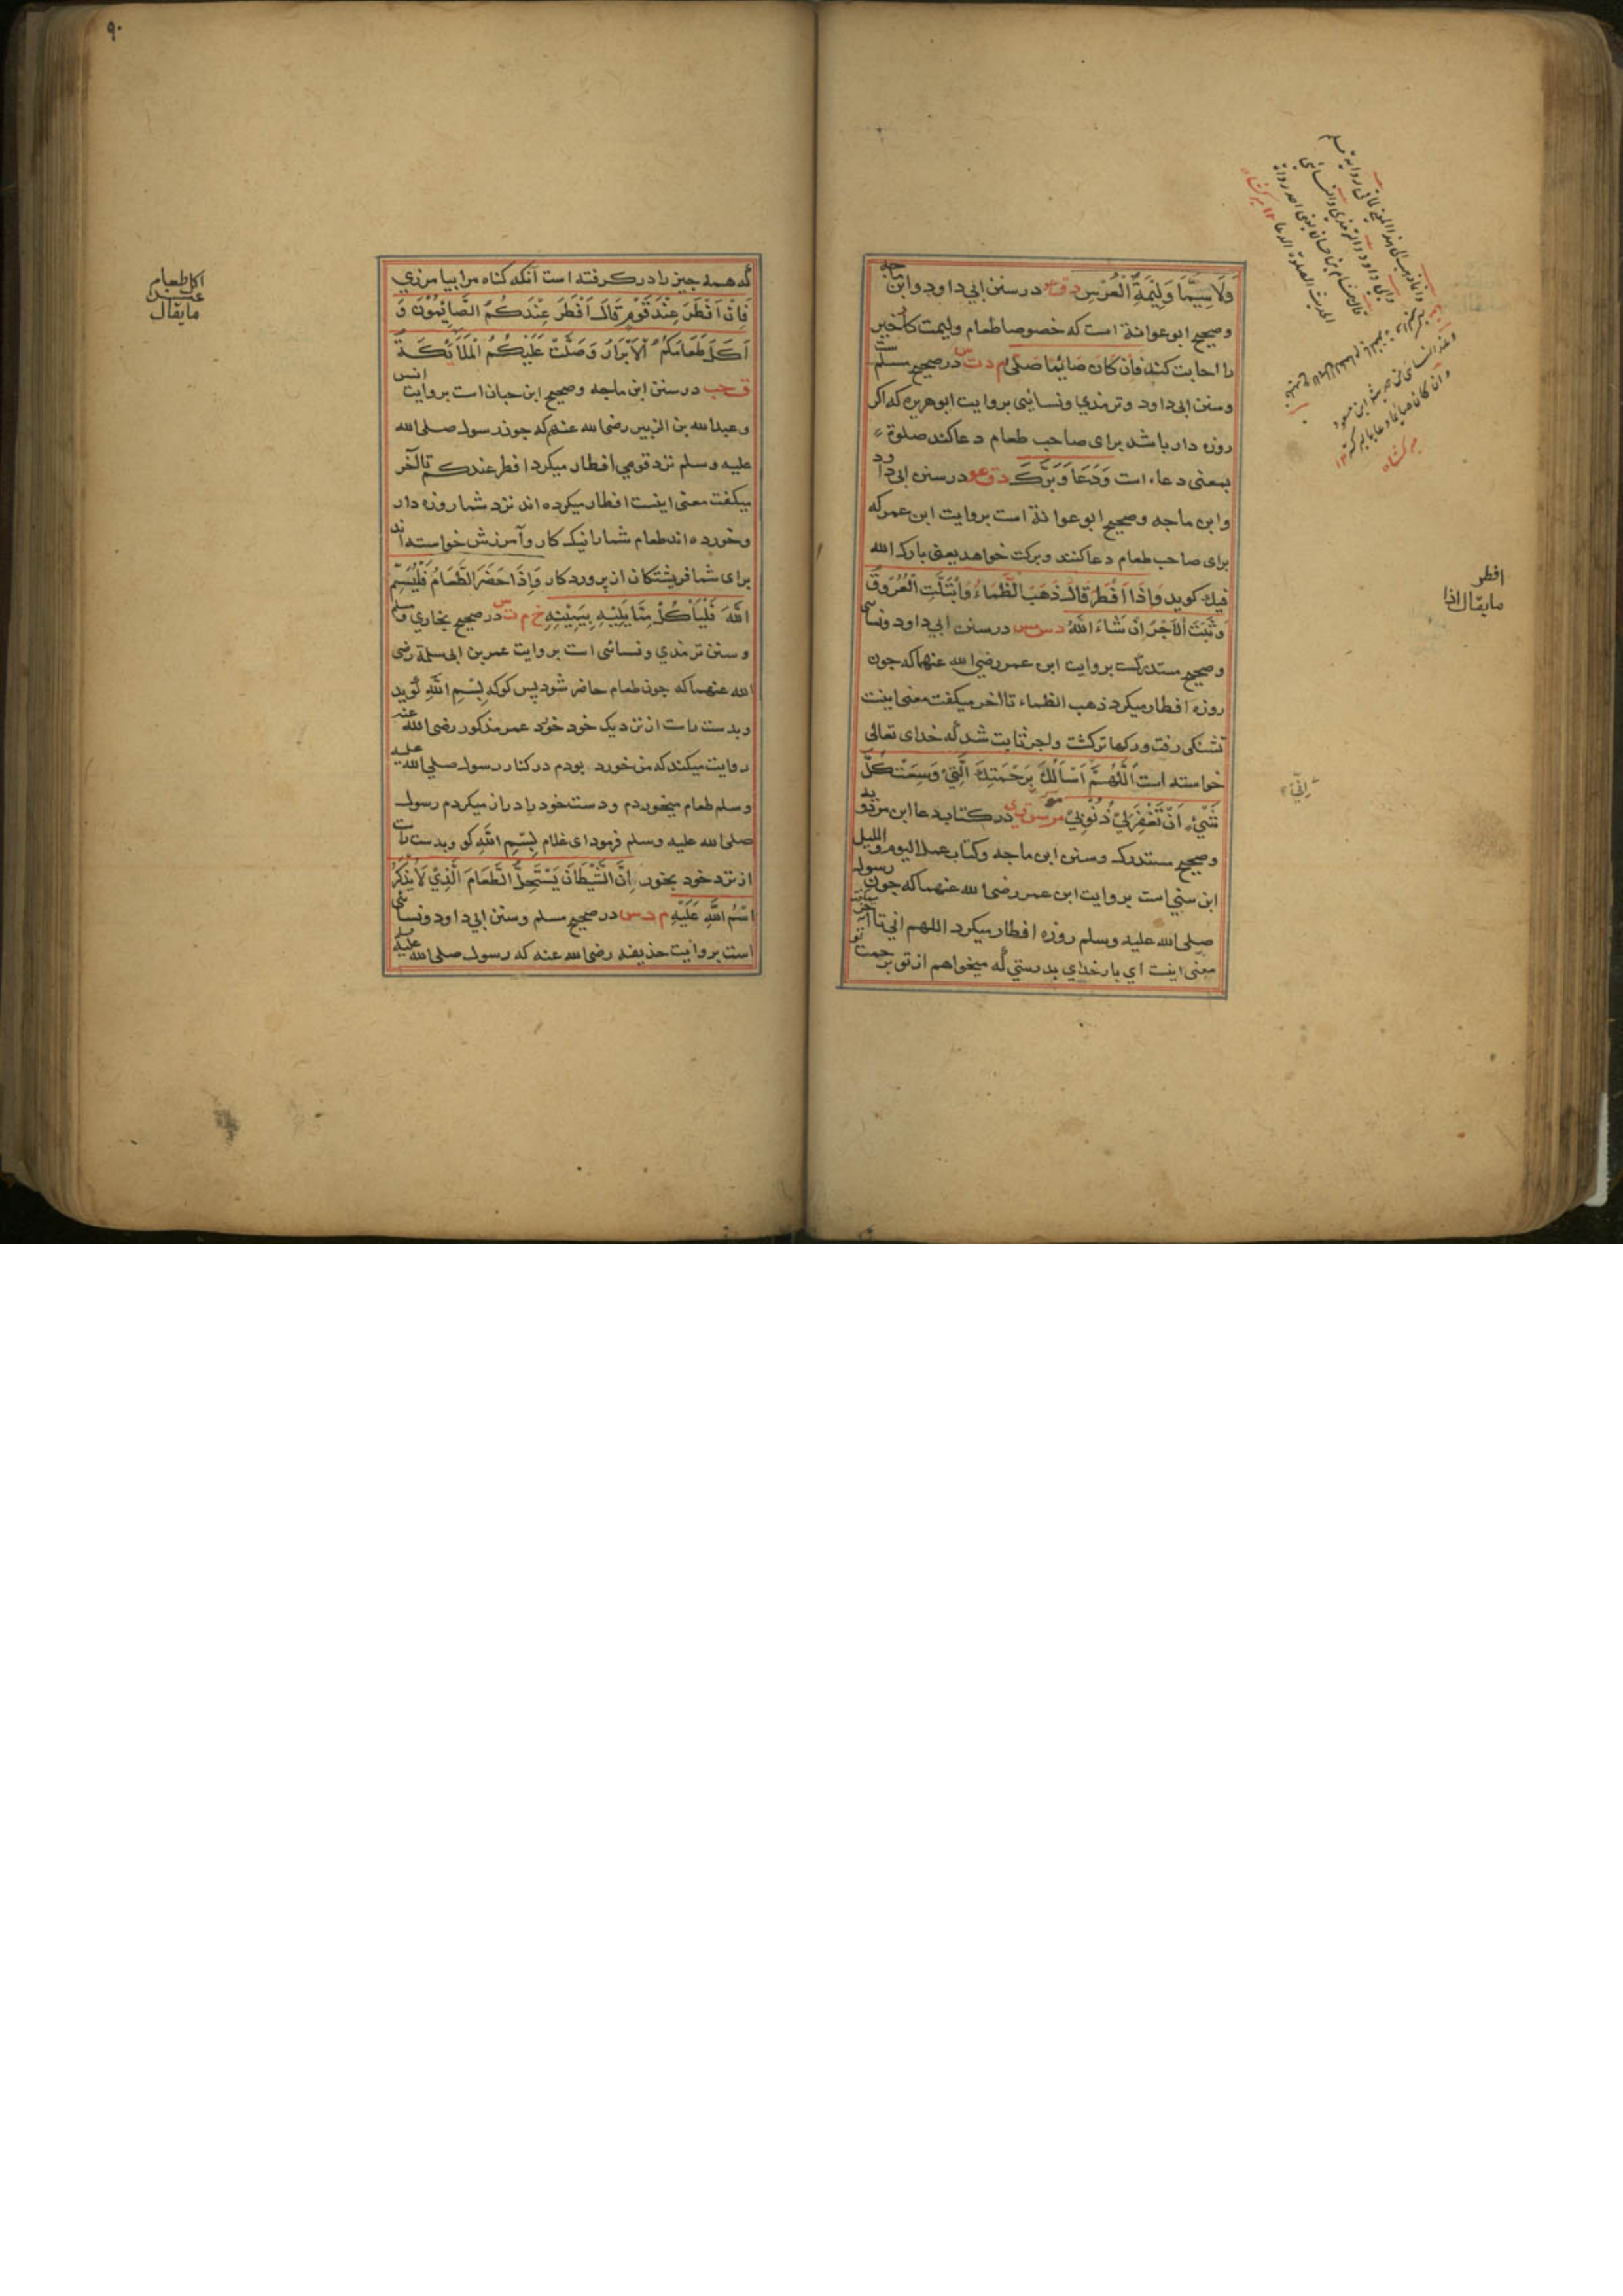 وَلَاسِيَّمَا وَلِيمَةِ الْعُرْسِ د ق عو در سنن ابي داود وابن ماجه
وصحيح ابو عوانة است كه خصوصا طعام وليمت كتخير
را اجابت كند فَاِنْ كَانَ صَائِمًا صَلَّى م د ت س در صحيح مسلم
وسنن ابى داود وترمذي ونسائى بروايت ابوهريره كه اكر
روزه دار باشد براى صاحب طعام دعا كند صلوة
بمعنى دعاء است وَدَعَا وَبَرَّكَ د ق عو در سنن ابى داود
وابن ماجه وصحيح ابو عوانة است بروايت ابن عمر كه
براى صاحب طعام دعا كنند وبركت خواهد يعنى بارك الله
فيك كويد وَاِذَا اَفْطَرَ قَالَ ذَهَبَ الظَّمَاءُ وَابْتَلَّتِ الْعُرُوقُ
وَثَبَتَ الْاَجْرُ اِنْ شَاءَ اللّٰهُ د س مس در سنن ابي داود ونسائى
وصحيح مستدركست بروايت ابن عمر رضي الله عنهما كه جون
روزه افطار ميكرد ذهب الظماء تا اخر ميكفت معنى اينست
تشنكى رفت وركها تركشت واجر ثابت شد كه خداى تعالى
خواسته است اَللّٰهُمَّ اَسْاَلُكَ بِرَحْمَتِكَ الَّتِيْ وَسِعَتْ كُلَّ
شَيْءٍ اَنْ تَغْفِرَ لِيْ ذُنُوْبِيْ مو مس ق ي در كتاب دعا ابن مردويه
وصحيح مستدرك وسنن ابن ماجه وكتاب عمل اليوم والليل
ابن سني است بروايت ابن عمر رضى الله عنهما كه جون رسول
صلى الله عليه وسلم روزه افطار ميكرد اللهم اني تا آخر
معنى اينست اي بار خداي بدرستي كه ميخواهم از تو برحمت تو
افطر
مايقال اذا
اِنِّيْ
٩٠
كه همه جيز را در كرفته است آنكه كناه مرا بيامرزي
فَاِنْ اَفْطَرَ عِنْدَ قَوْمٍ قَالَ اَفْطَرَ عِنْدَكُمُ الصَّائِمُوْنَ وَ
اَكَلَ طَعَامَكُمُ الْاَبْرَارُ وَصَلَّتْ عَلَيْكُمُ الْمَلَائِكَةُ
ق حب در سنن ابن ماجه وصحيح ابن حبان است بروايت انس
وعبدالله بن الزبير رضى الله عنهم كه جون رسول صلى الله
عليه وسلم نزد قومي افطار ميكرد افطر عندكم تا آخر
ميكفت معنى اينست افطار ميكرده اند نزد شما روزه دار
وخورده اند طعام شما را نيك كار وآمرزش خواسته اند
براى شما فريشتكان از پروردكار وَاِذَا حَضَرَ الطَّعَامُ فَلْيُسَمِّ
اللّٰهَ فَلْيَاْكُلْ مِمَّا يَلِيْهِ بِيَمِيْنِهِ خ م ت س در صحيح بخاري ومسلم
وسنن ترمذي ونسائى است بروايت عمر بن ابى سلمة رضى
الله عنهما كه جون طعام حاضر شود پس كو كه بِسْمِ اللّٰهِ كويد
وبدست راست از نزديك خود خورد عمر مذكور رضى الله عنه
روايت ميكند كه من خورد بودم در كنار رسول صلى الله عليه
وسلم طعام ميخوردم ودست خود را دراز ميكردم رسول
صلى الله عليه وسلم فرمود اى غلام بِسْمِ اللّٰهِ كو وبدست راست
از نزد خود بخور اِنَّ الشَّيْطَانَ يَسْتَحِلُّ الطَّعَامَ الَّذِيْ لَا يُذْكَرُ
اسْمُ اللّٰهِ عَلَيْهِ م د س در صحيح مسلم وسنن ابي داود ونسائى
است بروايت حذيفه رضى الله عنه كه رسول صلى الله عليه
اكل طعام
عند
مايقال